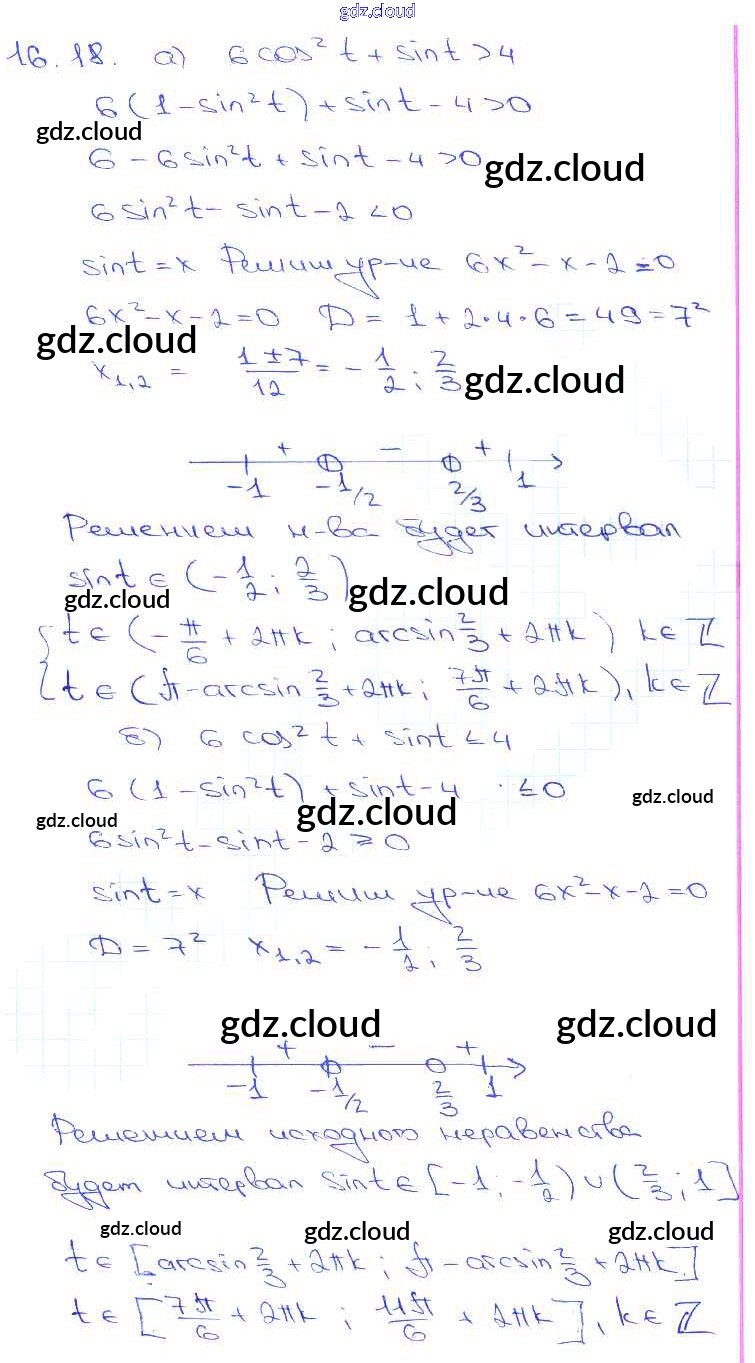 gdz.cloud
16.18. а) 6cos²t + sint > 4
6(1 - sin²t) + sint - 4 > 0
gdz.cloud
6 - 6sin²t + sint - 4 > 0
gdz.cloud
6sin²t - sint - 2 < 0
sint = x Решим ур-ие 6x² - x - 2 = 0
6x² - x - 2 = 0 D = 1 + 2·4·6 = 49 = 7²
gdz.cloud
x₁,₂ = (1 ± 7)/12 = -1/2; 2/3
gdz.cloud
+ - +
-1 -1/2 2/3 1
Решением н-ва будет интервал
sint ∈ (-1/2; 2/3)
gdz.cloud
gdz.cloud
{ t ∈ (-π/6 + 2πk; arcsin 2/3 + 2πk) k ∈ Z
t ∈ (π - arcsin 2/3 + 2πk; 7π/6 + 2πk), k ∈ Z
б) 6cos²t + sint ≤ 4
6(1 - sin²t) + sint - 4 ≤ 0
gdz.cloud
gdz.cloud
gdz.cloud
6sin²t - sint - 2 ≥ 0
sint = x Решим ур-ие 6x² - x - 2 = 0
D = 7² x₁,₂ = -1/2; 2/3
gdz.cloud
gdz.cloud
+ - +
-1 -1/2 2/3 1
Решением исходного неравенства
будет интервал sint ∈ [-1; -1/2) ∪ (2/3; 1]
gdz.cloud
gdz.cloud
t ∈ [arcsin 2/3 + 2πk; π - arcsin 2/3 + 2πk]
t ∈ [7π/6 + 2πk; 11π/6 + 2πk], k ∈ Z